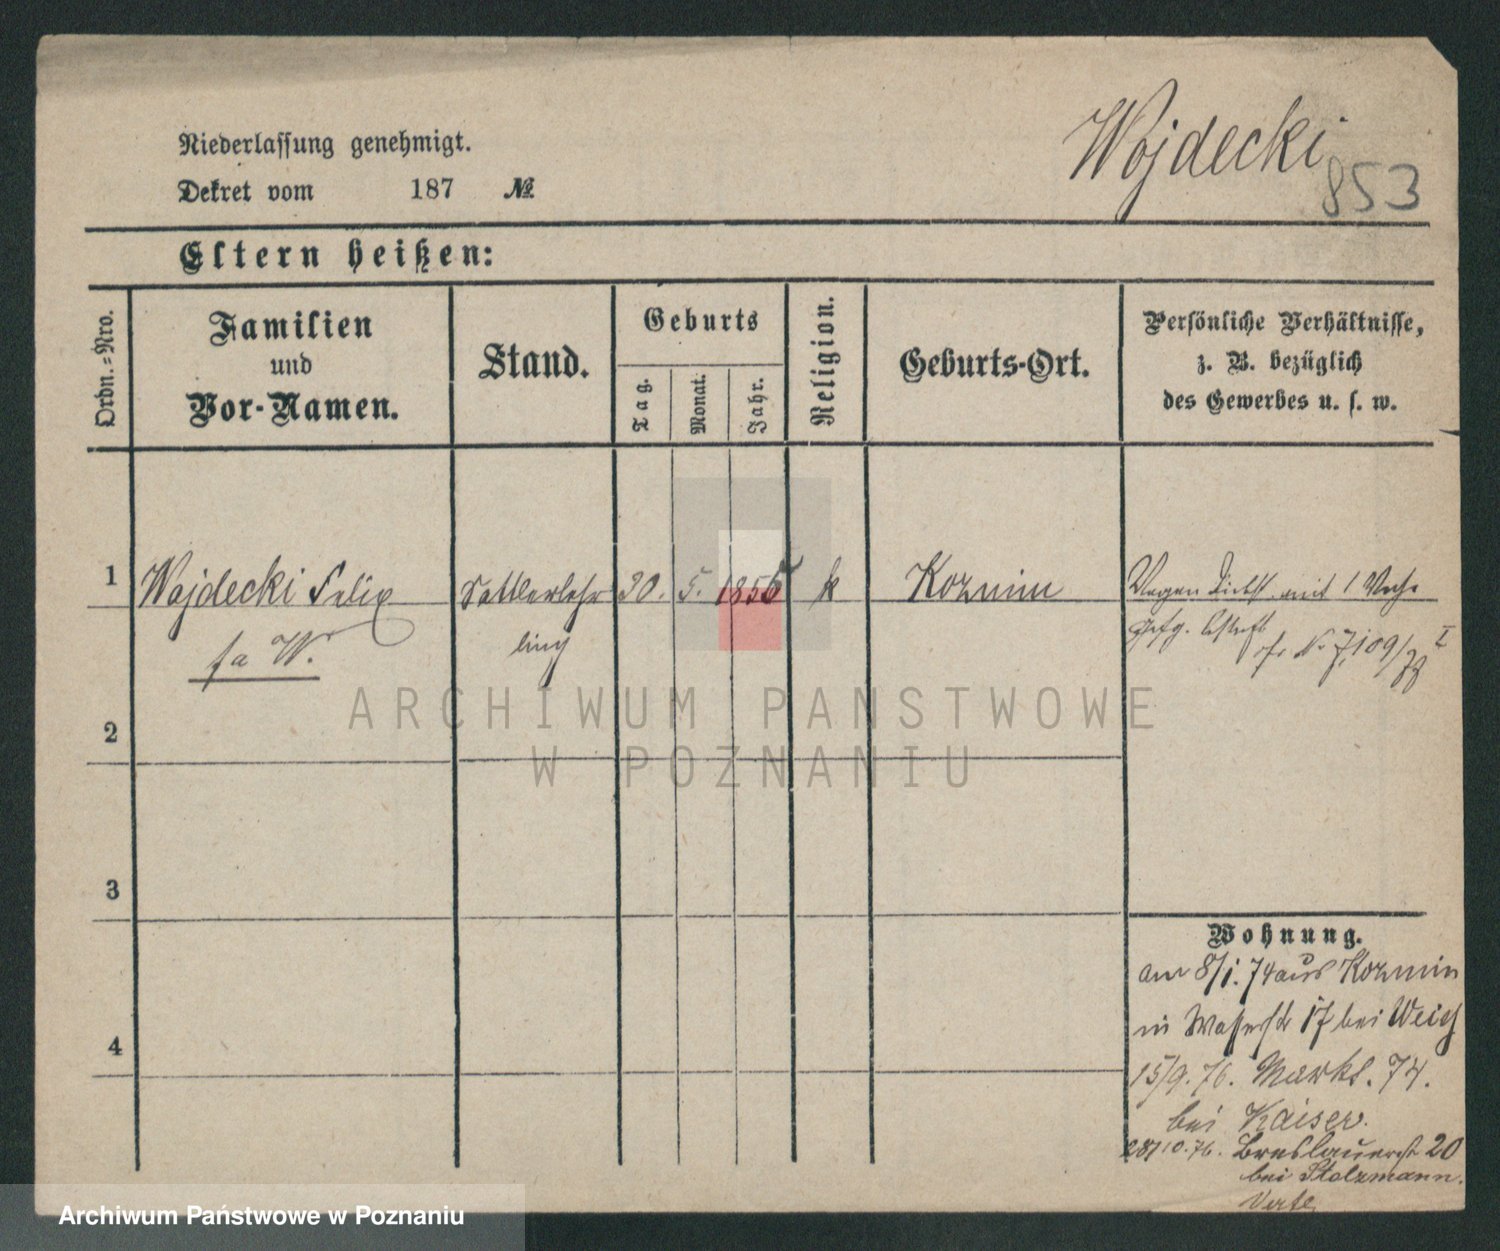 Wojdecki
853
Niederlassung genehmigt.
Dekret vom 187 №
Eltern heißen:
Ordn.-Nro.
Familien
und
Vor-Namen.
Stand.
Geburts
Tag.
Monat.
Jahr.
Religion.
Geburts-Ort.
Persönliche Verhältnisse,
z. B. bezüglich
des Gewerbes u. s. w.
1 Wojdecki Felix Sattlerlehr 5. 1856 k Kozmin Wegen Diebst. mit 1 Woche
ling
Gefg. bestraft
fa W.
2
3
4
Wohnung.
am 8/1. 74 aus Kozmin
in Wasserstr 17 bei
15/9. 76. Markt. 74.
bei Kaiser.
28/10. 76. Breslauerstr 20
bei Stolzmann.
Verte
ARCHIWUM PAŃSTWOWE
W POZNANIU
Archiwum Państwowe w Poznaniu